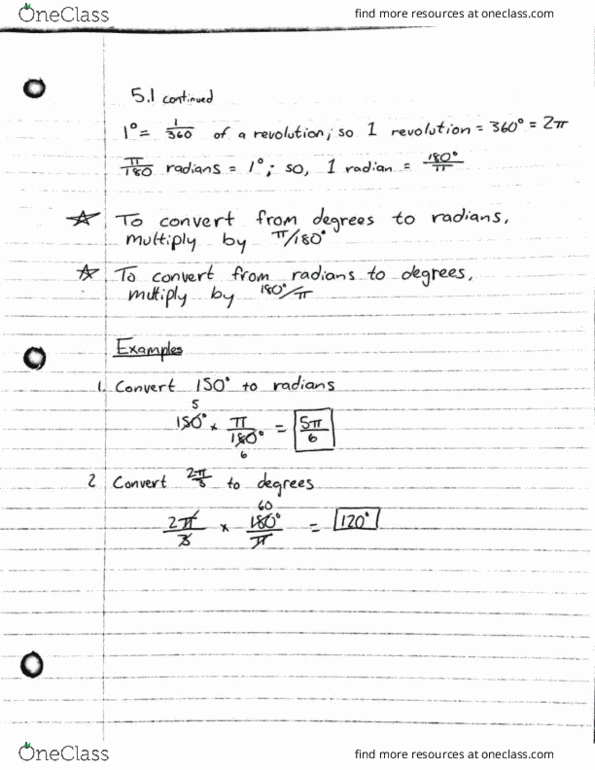 OneClass find more resources at oneclass.com
5.1 continued
1° = 1/360 of a revolution; so 1 revolution = 360° = 2π
π/180 radians = 1°; so, 1 radian = 180°/π
☆ To convert from degrees to radians,
multiply by π/180°
☆ To convert from radians to degrees,
multiply by 180°/π
Examples
1. Convert 150° to radians
5
150° × π/180° = 5π/6
6
2 Convert 2π/3 to degrees
60
2π/3 × 180°/π = 120°
OneClass find more resources at oneclass.com